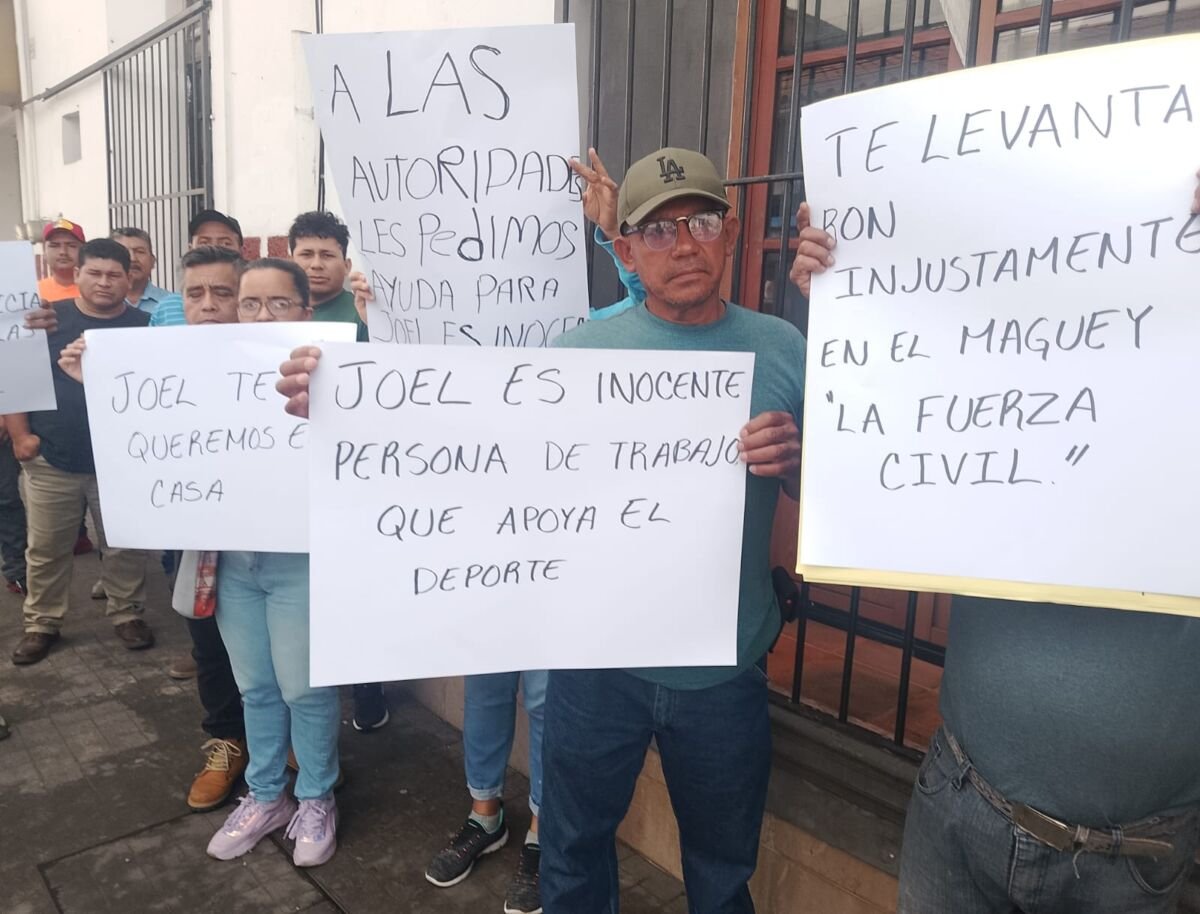 A LAS
AUTORIDADES
LES PEDIMOS
AYUDA PARA
JOEL ES
LA
TE LEVANTA
RON
INJUSTAMENTE
EN EL MAGUEY
"LA FUERZA
CIVIL."
JOEL TE
QUEREMOS E
CASA
JOEL ES INOCENTE
PERSONA DE TRABAJO
QUE APOYA EL
DEPORTE